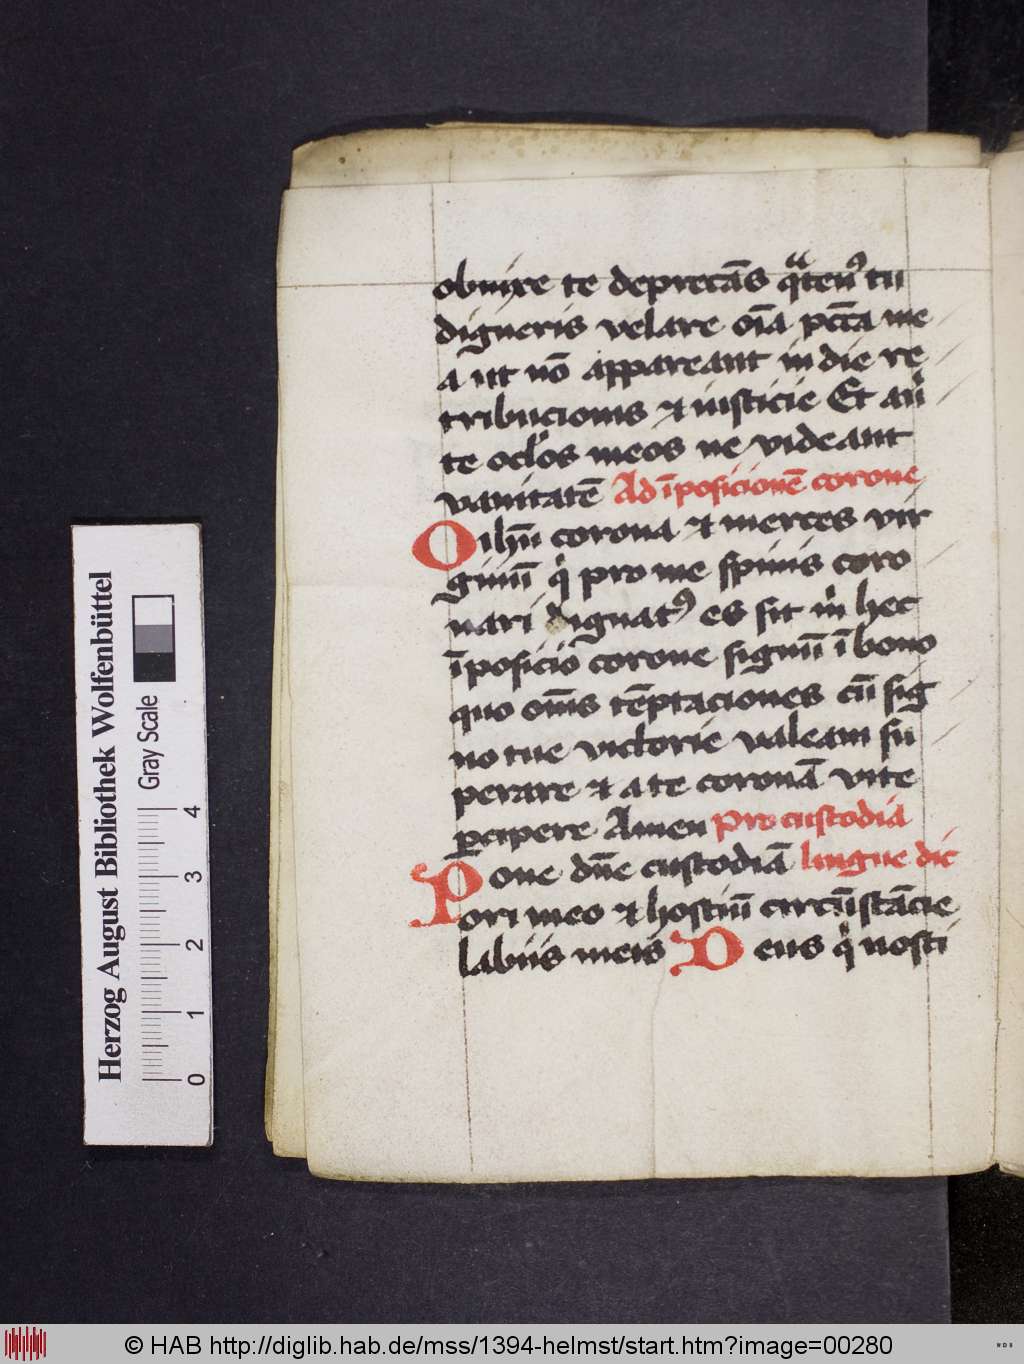 obnixe te deprecās q̄tenꝰ tu
digneris velare oīa pctā me
a ut nō appareant in die re
tribucionis et iusticie Et au
te oclos meos ne videant
vanitatē Ad īposicionē corone
O ihū corona et merces vir
ginū qi pro me spinis coro
nari dignatꝰ es sit m hec
īposicio corone signū ī bono
quo om̄s tēptaciones cū sig
no tue victorie valeam su
perare et a te coronā vite
ꝑcipere Amen Pro custodia
Pone dn̄e custodiā lingue dic
ori meo et hostiū circūstācie
labiis meis Deus qi nosti
Herzog August Bibliothek Wolfenbüttel
Gray Scale
0 1 2 3 4
© HAB http://diglib.hab.de/mss/1394-helmst/start.htm?image=00280